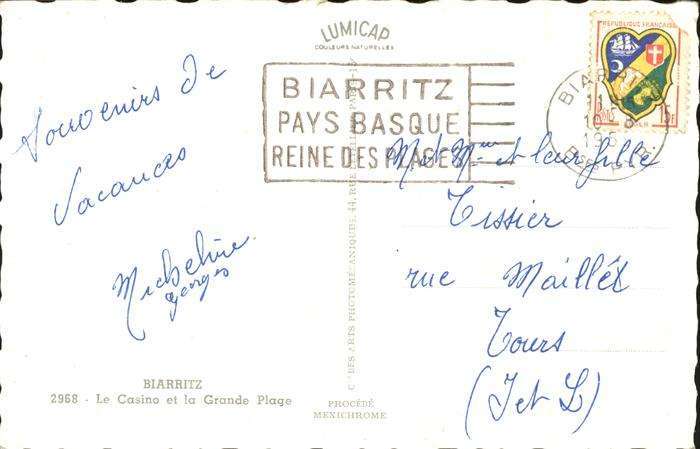 LUMICAP
COULEURS NATURELLES
BIARRITZ
PAYS BASQUE
REINE DES PLAGES
REPUBLIQUE FRANÇAISE
15F
BIARRITZ
Souvenirs de
Vacances
Micheline
Georges
Mr et Mme et leur fille
Tissier
rue Maillet
Tours
(I et L)
BIARRITZ
2968 - Le Casino et la Grande Plage
PROCÉDÉ
MEXICHROME